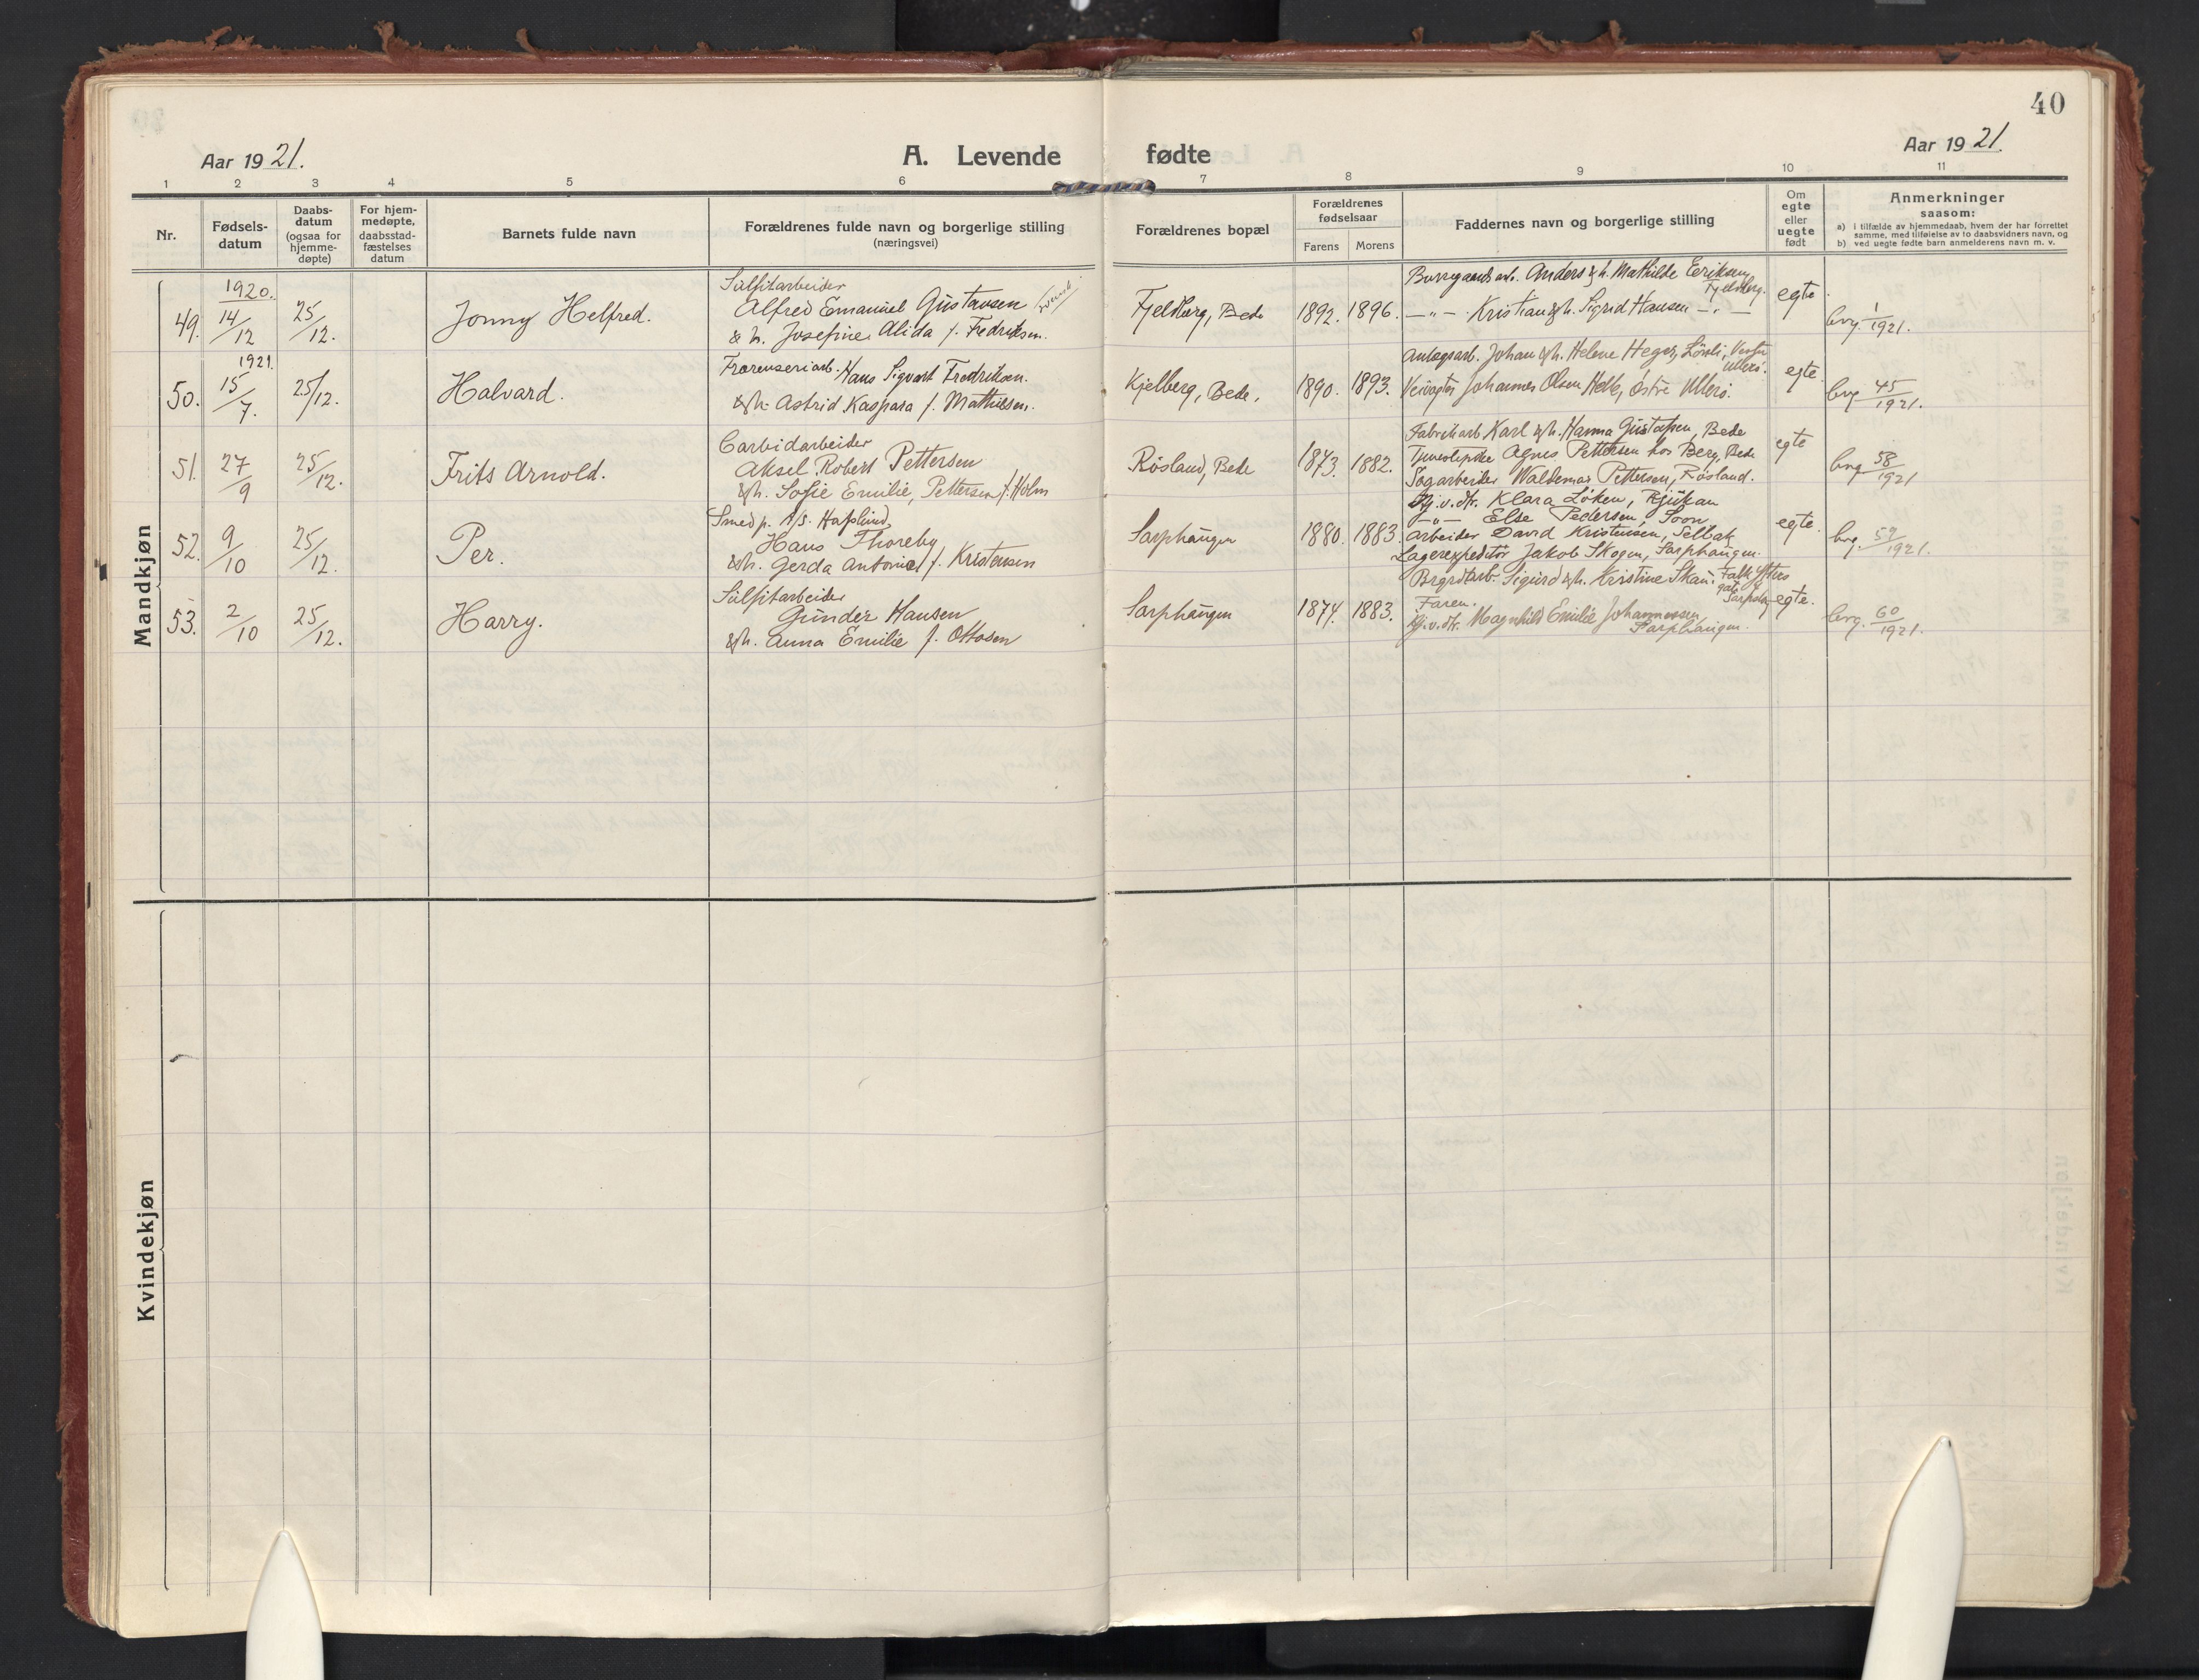 40
Aar 1921.
A. Levende fødte
Aar 1921.
1 2 3 4 5 6 7 8 9 10 11
Nr.
Fødsels-
datum
Daabs-
datum
(ogsaa for
hjemme-
døpte)
For hjem-
medøpte,
daabsstad-
fæstelses
datum
Barnets fulde navn
Forældrenes fulde navn og borgerlige stilling
(næringsvei)
Forældrenes bopæl
Forældrenes
fødselsaar
Farens Morens
Faddernes navn og borgerlige stilling
Om
egte
eller
uegte
født
Anmerkninger
saasom:
a) i tilfælde av hjemmedaab, hvem der har forrettet
samme, med tilføielse av to daabsvidners navn, og
b) ved uegte fødte barn anmelderens navn m. v.
Mandkjøn
1920.
49. 14/12 25/12. Jonny Helfred.
Sulfitarbeider
Alfred Emanuel Gustavsen (svensk)
& h. Josefine Alida f. Fredriksen.
Fjeldberg, Bede 1892. 1896.
Borregaardsarb. Anders & h. Mathilde Eriksen,
Fjeldberg.
—"— Kristian & h. Sigrid Hansen —"—
egte.
bvg. 1/1921.
1921.
50. 15/7. 25/12. Halvard.
Hans Sigvart Fredriksen.
& h. Astrid Kaspara f. Mathisen.
Kjelberg, Bede, 1890. 1893.
Anlegsarb. Johan & h. Helene Heger,
Ullerø.
Johannes Olsen Østre Ullerø.
egte.
bvg 45/1921.
51. 27/9 25/12. Frits Arnold.
Carbidarbeider
Aksel Robert Pettersen
& h. Sofie Emilie, Pettersen f. Holm
Røsland, Bede 1873. 1882.
Fabrikarb Karl & h. Hanna Gustafsen, Bede
Tjenestepike Agnes Pettersen hos Berg, Bede
Sagarbeider Waldemar Pettersen, Røsland.
egte
bvg 58/1921
52. 9/10 25/12. Per.
Smed p. A/S. Hafslund,
Hans Thoreby
& h. Gerda Antonie f. Kristensen
Sarphaugen 1880. 1883.
Hj.v.dtr. Klara Løken, Rjukan
—"— Else Pedersen, Soon.
Arbeider David Kristensen, Selbak
Lagerexpeditør Jakob Skogen, Sarphaugen.
egte.
bvg. 59/1921.
53. 2/10 25/12. Harry.
Sulfitarbeider
Gunder Hansen
& h. Anna Emilie f. Ottosen
Sarphaugen 1874. 1883.
Sigurd & h. Kristine Skau,
Faren.
Hj.v.dtr. Magnhild Emilie Johannessen,
Sarphaugen.
egte.
bvg. 60/1921.
Kvindekjøn